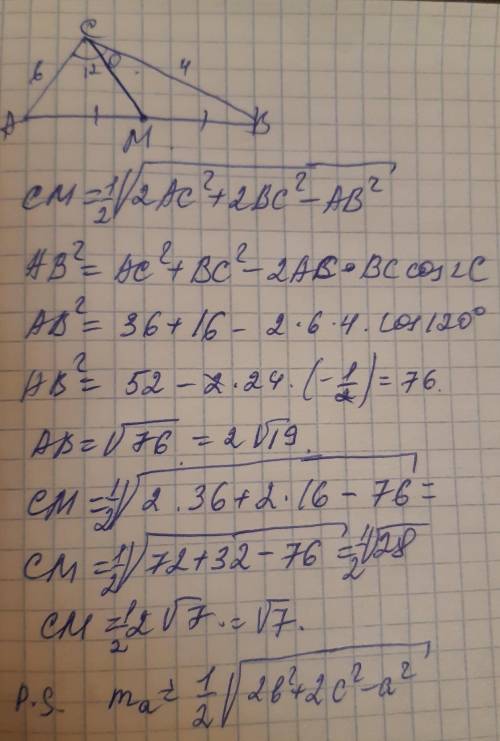 C
6 120° 4
A M B
CM = 1/2 √(2AC² + 2BC² − AB²)
AB² = AC² + BC² − 2AC · BC cos∠C
AB² = 36 + 16 − 2 · 6 · 4 · cos120°
AB² = 52 − 2 · 24 · (−1/2) = 76.
AB = √76 = 2√19.
CM = 1/2 √(2 · 36 + 2 · 16 − 76) =
CM = 1/2 √(72 + 32 − 76) = 1/2 √28
CM = 1/2 2√7 = √7.
P.S. mₐ = 1/2 √(2b² + 2c² − a²)